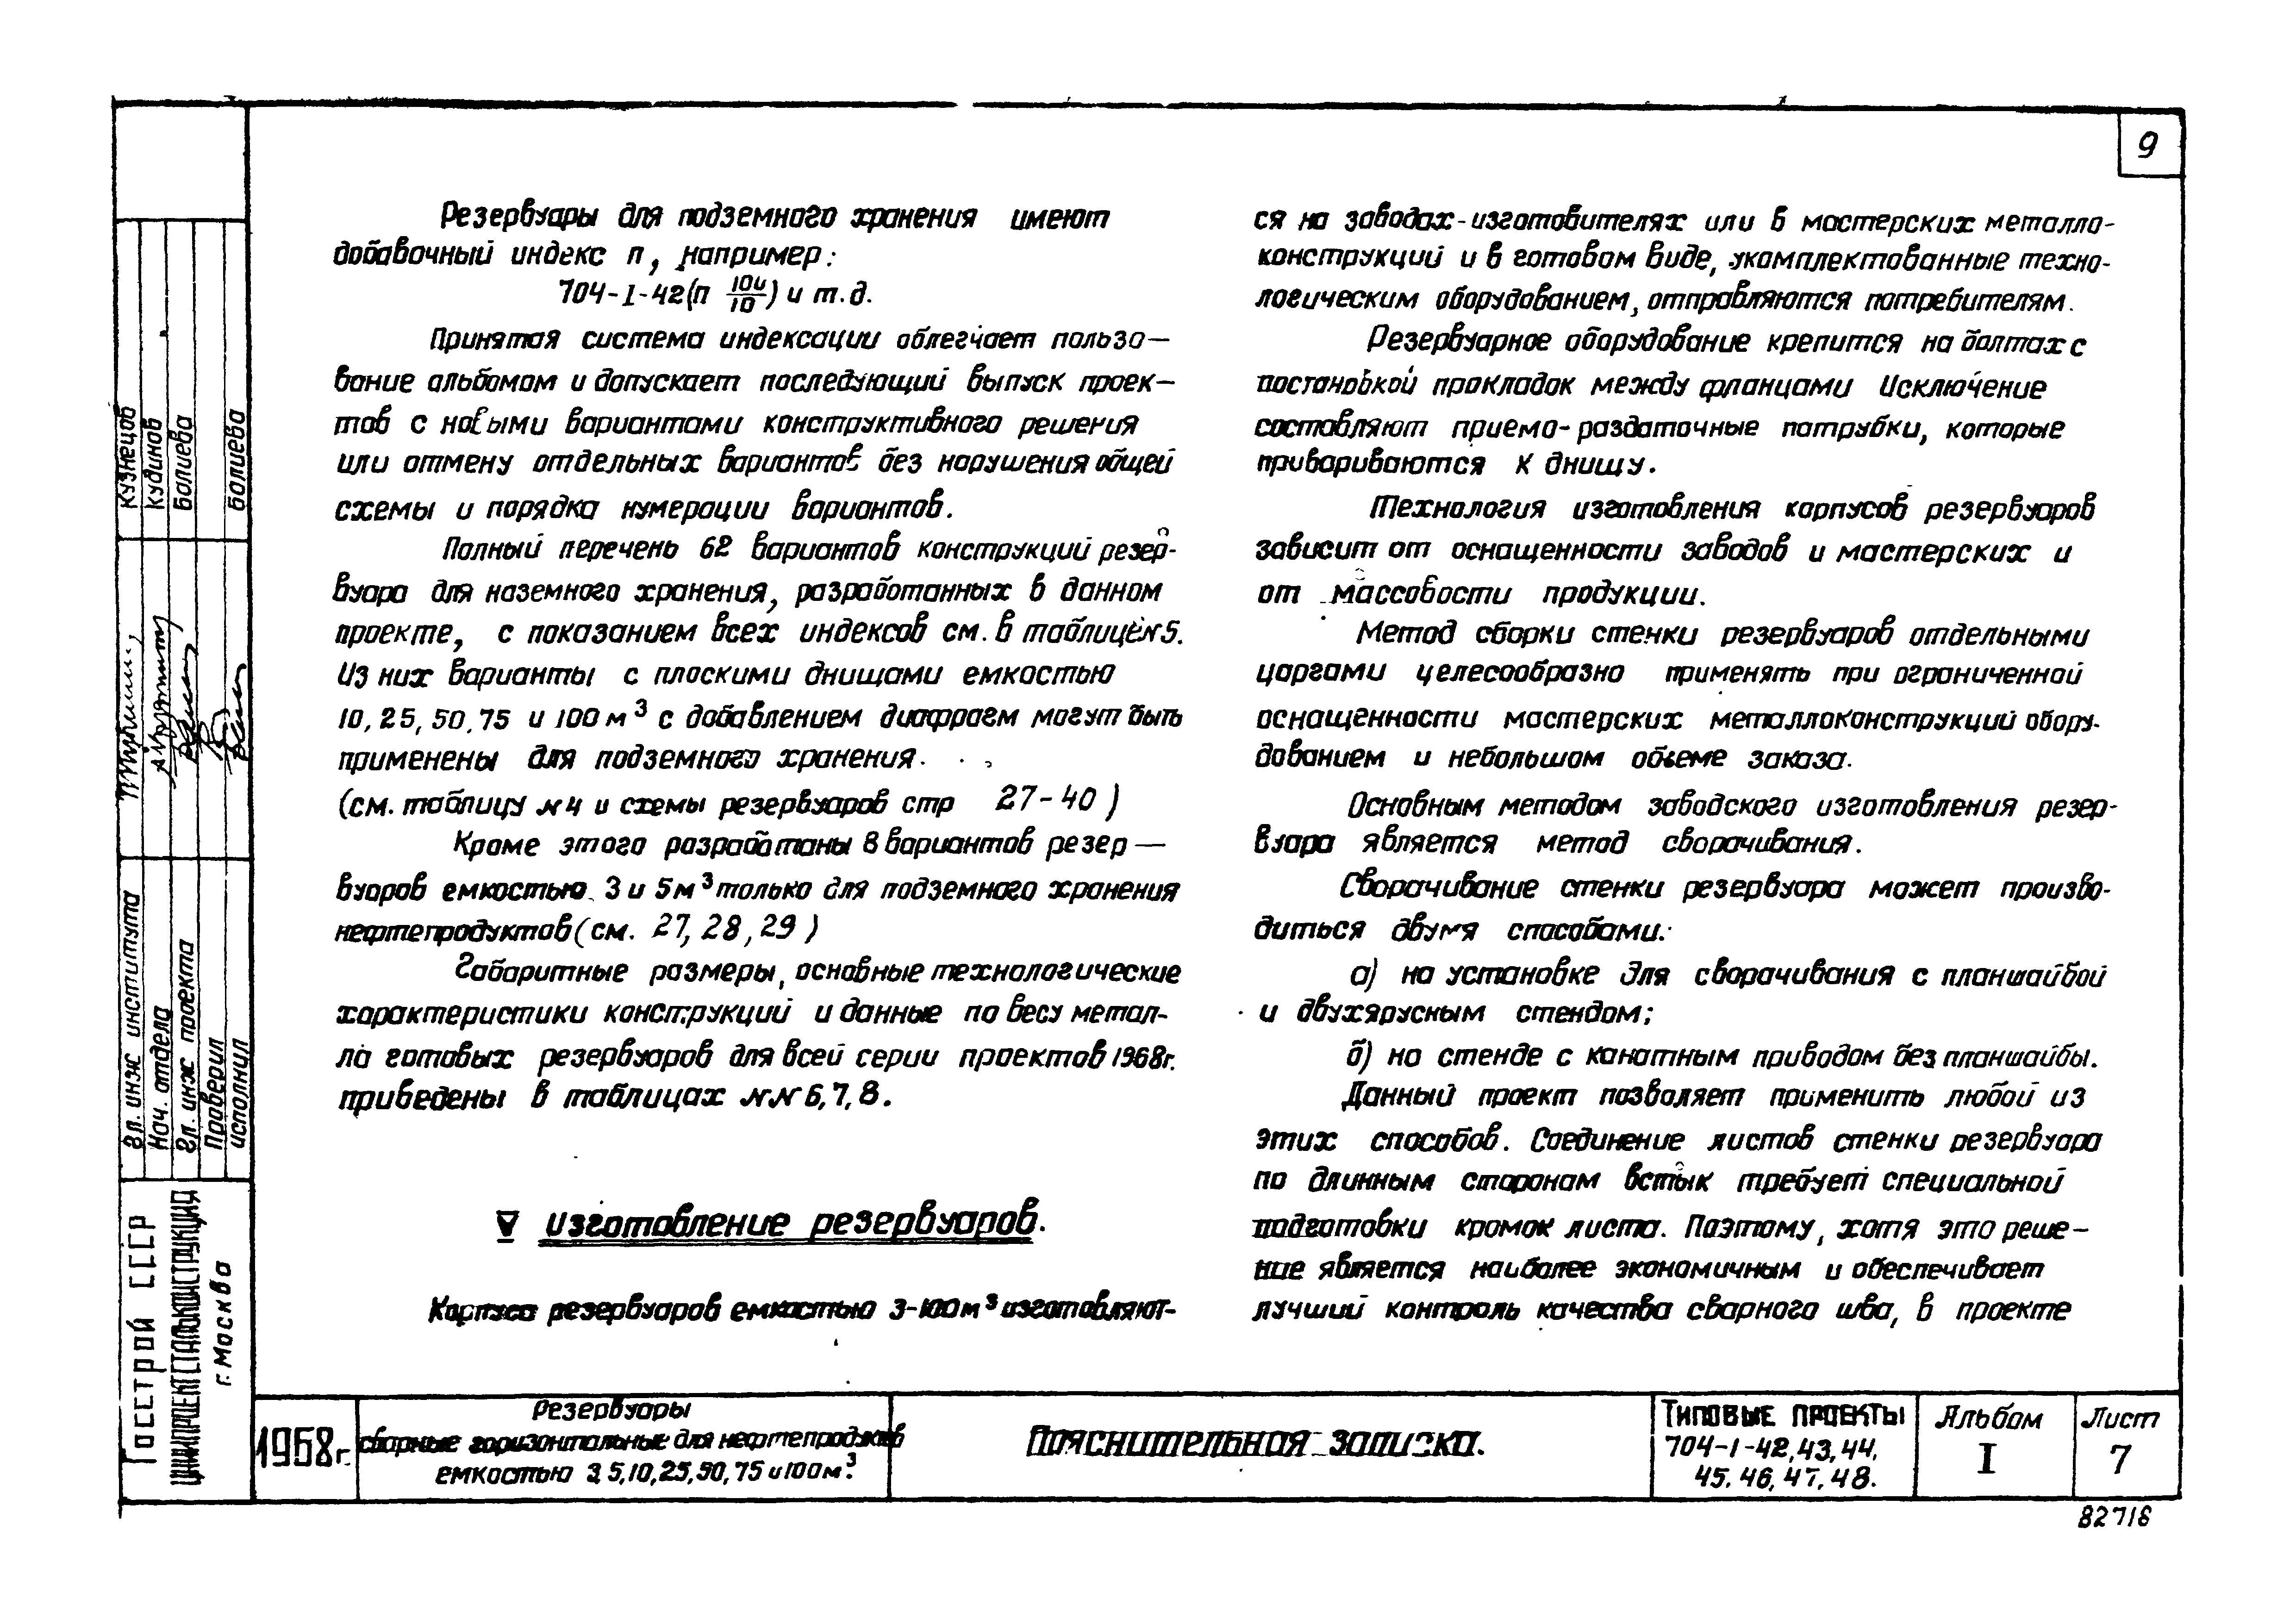 9
Резервуары для подземного хранения имеют
добавочный индекс п, например:
704-1-42(п 104/10) и т.д.
Принятая система индексации облегчает пользо—
вание альбомом и допускает последующий выпуск проек—
тов с новыми вариантами конструктивного решения
или отмену отдельных вариантов без нарушения общей
схемы и порядка нумерации вариантов.
Полный перечень 62 вариантов конструкций резер-
вуара для наземного хранения, разработанных в данном
проекте, с показанием всех индексов см. в таблице №5.
Из них варианты с плоскими днищами емкостью
10, 25, 50, 75 и 100 м³ с добавлением диафрагм могут быть
применены для подземного хранения.
(см. таблицу №4 и схемы резервуаров стр 27-40)
Кроме этого разработаны 8 вариантов резер—
вуаров емкостью 3 и 5м³ только для подземного хранения
нефтепродуктов (см. 27, 28, 29)
Габаритные размеры, основные технологические
характеристики конструкций и данные по весу метал-
ла готовых резервуаров для всей серии проектов 1968г.
приведены в таблицах №№ 6, 7, 8.
V изготовление резервуаров.
Корпуса резервуаров емкостью 3-100м³ изготовляют-
ся на заводах-изготовителях или в мастерских металло-
конструкций и в готовом виде, укомплектованные техно-
логическим оборудованием, отправляются потребителям.
Резервуарное оборудование крепится на болтах с
постановкой прокладок между фланцами Исключение
составляют приемо-раздаточные патрубки, которые
привариваются к днищу.
Технология изготовления корпусов резервуаров
зависит от оснащенности заводов и мастерских и
от массовости продукции.
Метод сборки стенки резервуаров отдельными
царгами целесообразно применять при ограниченной
оснащенности мастерских металлоконструкций обору-
дованием и небольшом объеме заказа.
Основным методом заводского изготовления резер-
вуара является метод сворачивания.
Сворачивание стенки резервуара может произво-
диться двумя способами:
а) на установке для сворачивания с планшайбой
и двухярусным стендом;
б) на стенде с канатным приводом без планшайбы.
Данный проект позволяет применить любой из
этих способов. Соединение листов стенки резервуара
по длинным сторонам встык требует специальной
подготовки кромок листа. Поэтому, хотя это реше—
ние является наиболее экономичным и обеспечивает
лучший контроль качества сварного шва, в проекте
Кузнецов
Кудинов
Балиева
Балиева
Гл. инж института
Нач. отдела
Гл. инж проекта
Проверил
исполнил
Госстрой СССР
ЦНИИПРОЕКТСТАЛЬКОНСТРУКЦИЯ
г. Москва
1968г.
Резервуары
сборные горизонтальные для нефтепродуктов
емкостью 3, 5, 10, 25, 50, 75 и 100 м³.
Пояснительная записка.
Типовые проекты
704-1-42, 43, 44,
45, 46, 47, 48.
Альбом
I
Лист
7
82718